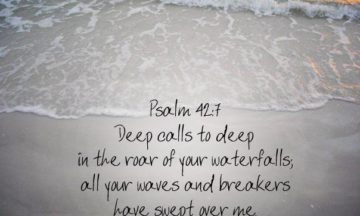 Psalm 42:7
Deep calls to deep
in the roar of your waterfalls;
all your waves and breakers
have swept over me.